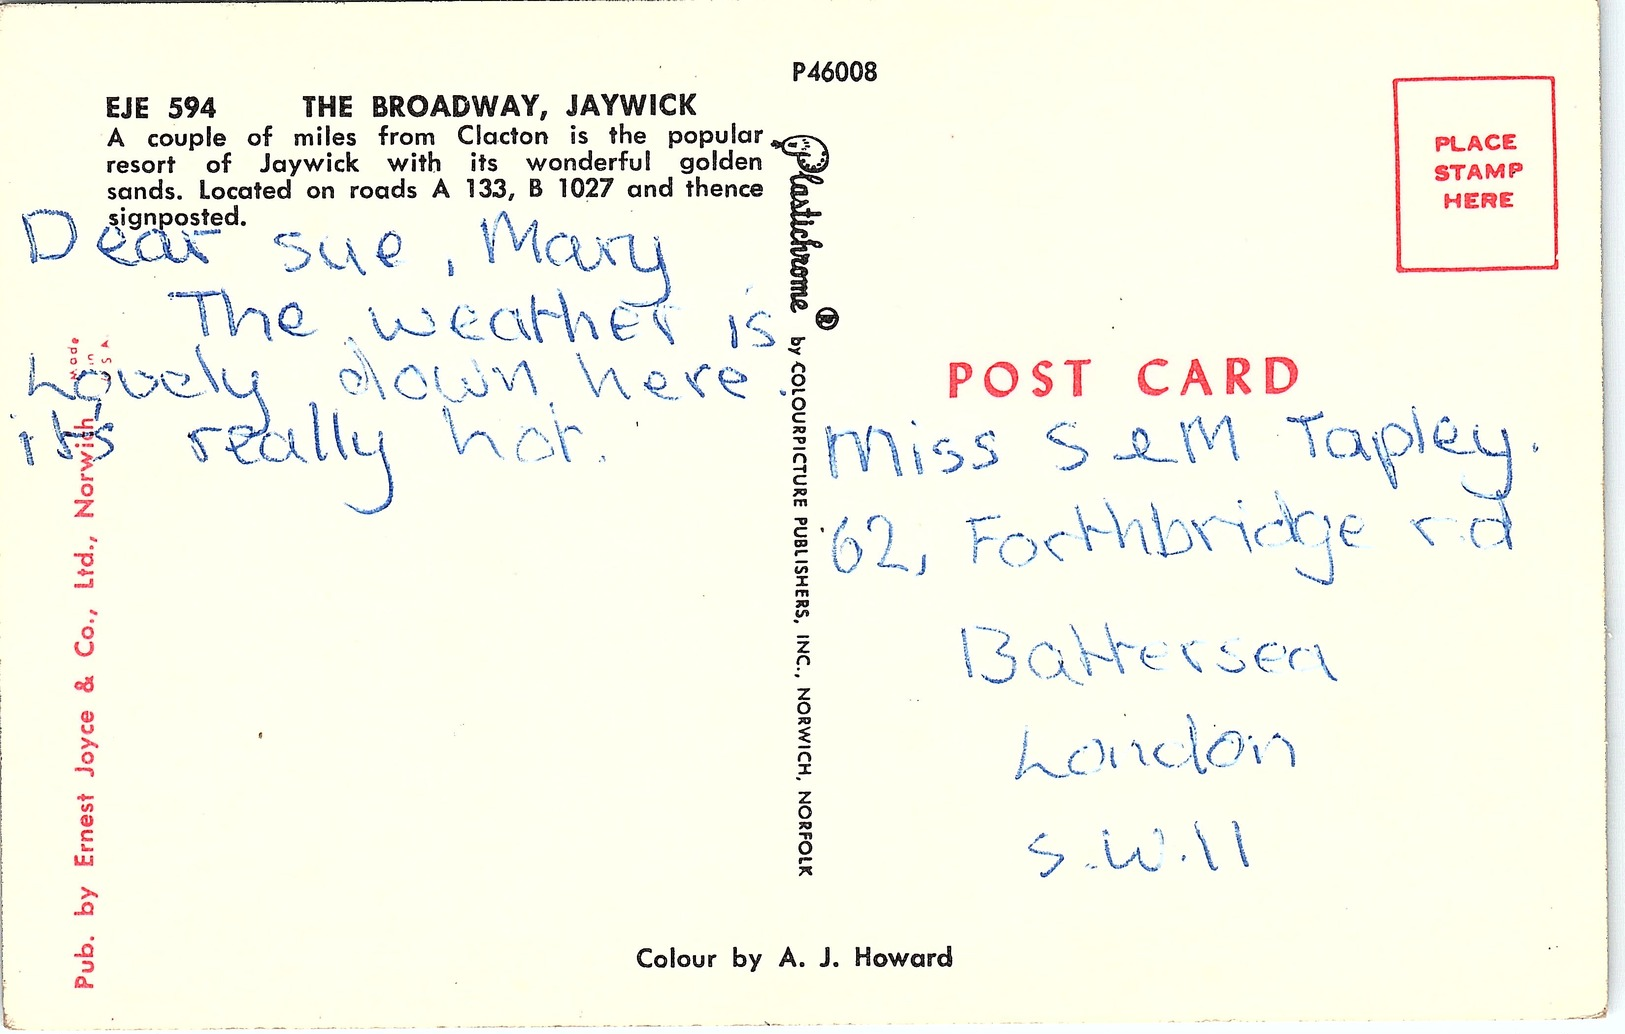 P46008
EJE 594 THE BROADWAY, JAYWICK
A couple of miles from Clacton is the popular
resort of Jaywick with its wonderful golden
sands. Located on roads A 133, B 1027 and thence
signposted.
Dear sue, Mary
The weather is
Lovely down here.
it's really hot.
Made
in
U S A
Pub. by Ernest Joyce & Co., Ltd., Norwich
Plastichrome ® by COLOURPICTURE PUBLISHERS, INC., NORWICH, NORFOLK
PLACE
STAMP
HERE
POST CARD
Miss S e M Tapley.
62, Forthbridge rd
Battersea
London
S.W.11
Colour by A. J. Howard